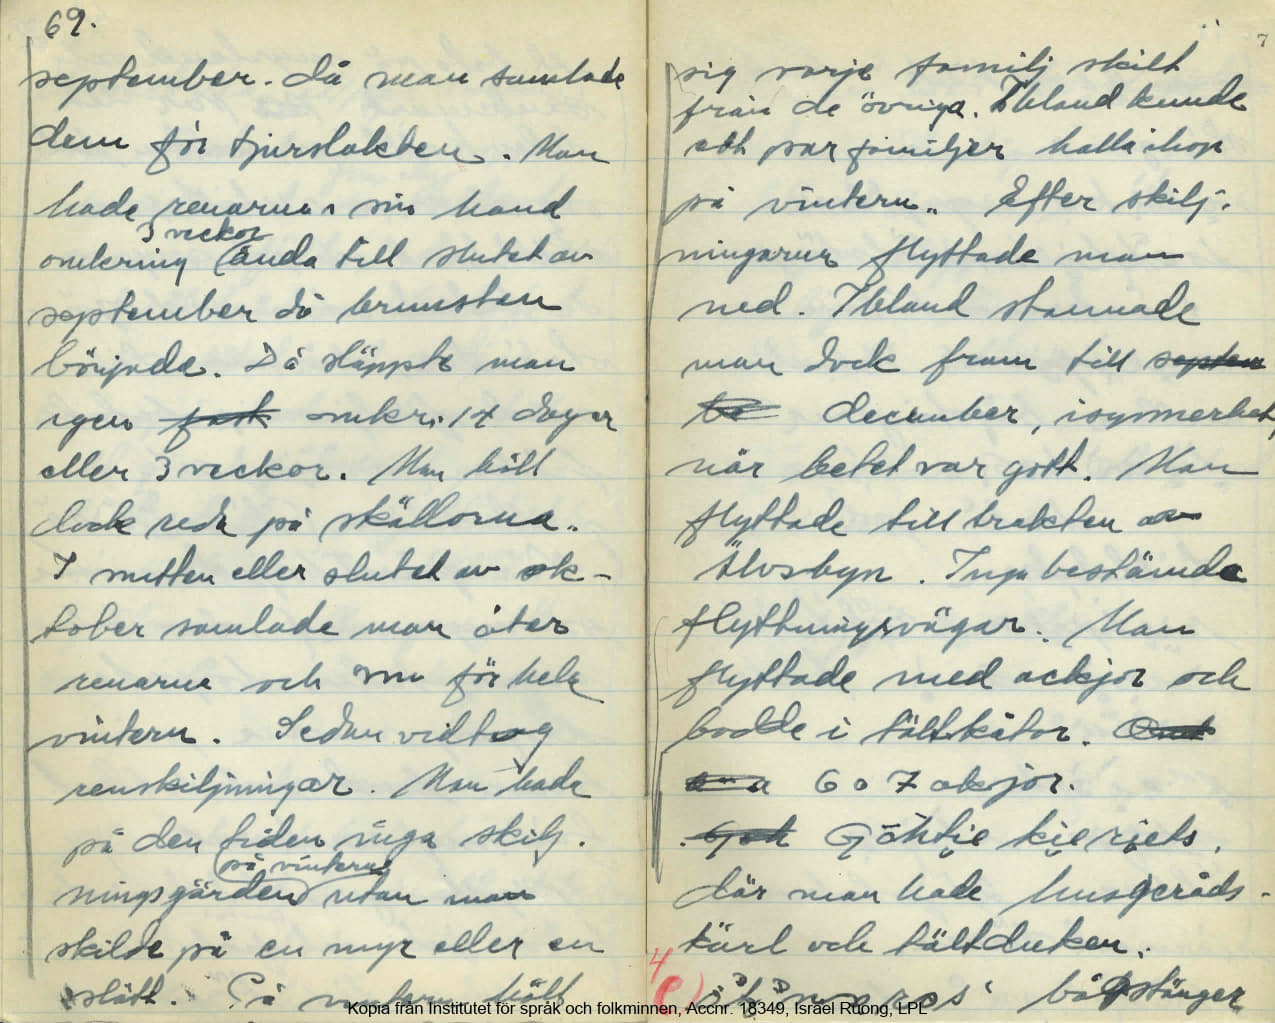 69.
september. då man samlade
dem för tjurslakten. Man
hade renarna i sin hand
3 veckor
omkring ända till slutet av
september då brunsten
började. Då släppte man
igen omkr. 14 dagar
eller 3 veckor. Man höll
dock reda på skällorna.
I mitten eller slutet av ok-
tober samlade man åter
renarna och nu för hela
vintern. Sedan vidtog
renskiljningar. Man hade
på den tiden inga skilj.
på vintern
ningsgärden utan man
skilde på en myr eller en
slätt. På vintern höll
7
sig varje familj skilt
från de övriga. Ibland kunde
ett par familjer hålla ihop
på vintern. Efter skilj.
ningarna flyttade man
ned. Ibland stannade
man dock fram till septem
december, isynnerhet,
när betet var gott. Man
flyttade till trakten av
Älvsbyn. Inga bestämda
flyttningsvägar. Man
flyttade med ackjor och
bodde i tältkåtor.
6 o 7 akjor.
Göhtie kierjets,
där man hade husgeråds-
kärl och tältduken.
4
bågstänger
Kopia från Institutet för språk och folkminnen, Accnr. 18349, Israel Ruong, LPL